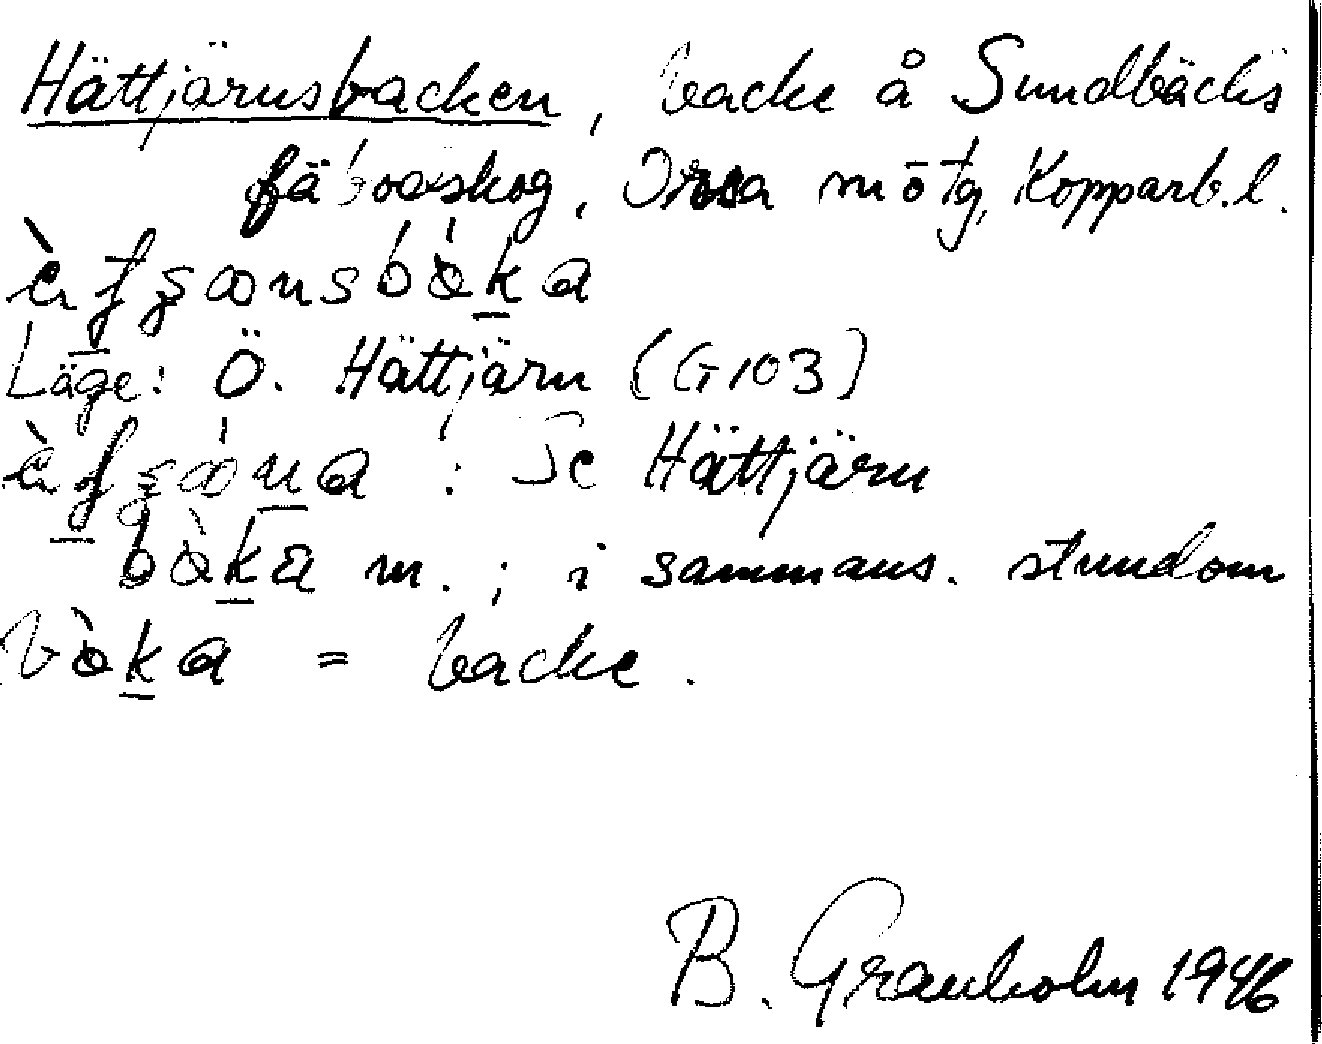 Hättjärnsbacken, backe å Sundbäcks
fäbodskog, Orsa Kopparb.l.
Läge: Ö. Hättjärn (G103)
: Se Hättjärn
bàka m. ; i sammans. stundom
vàka = backe.
B. Granholm 1946